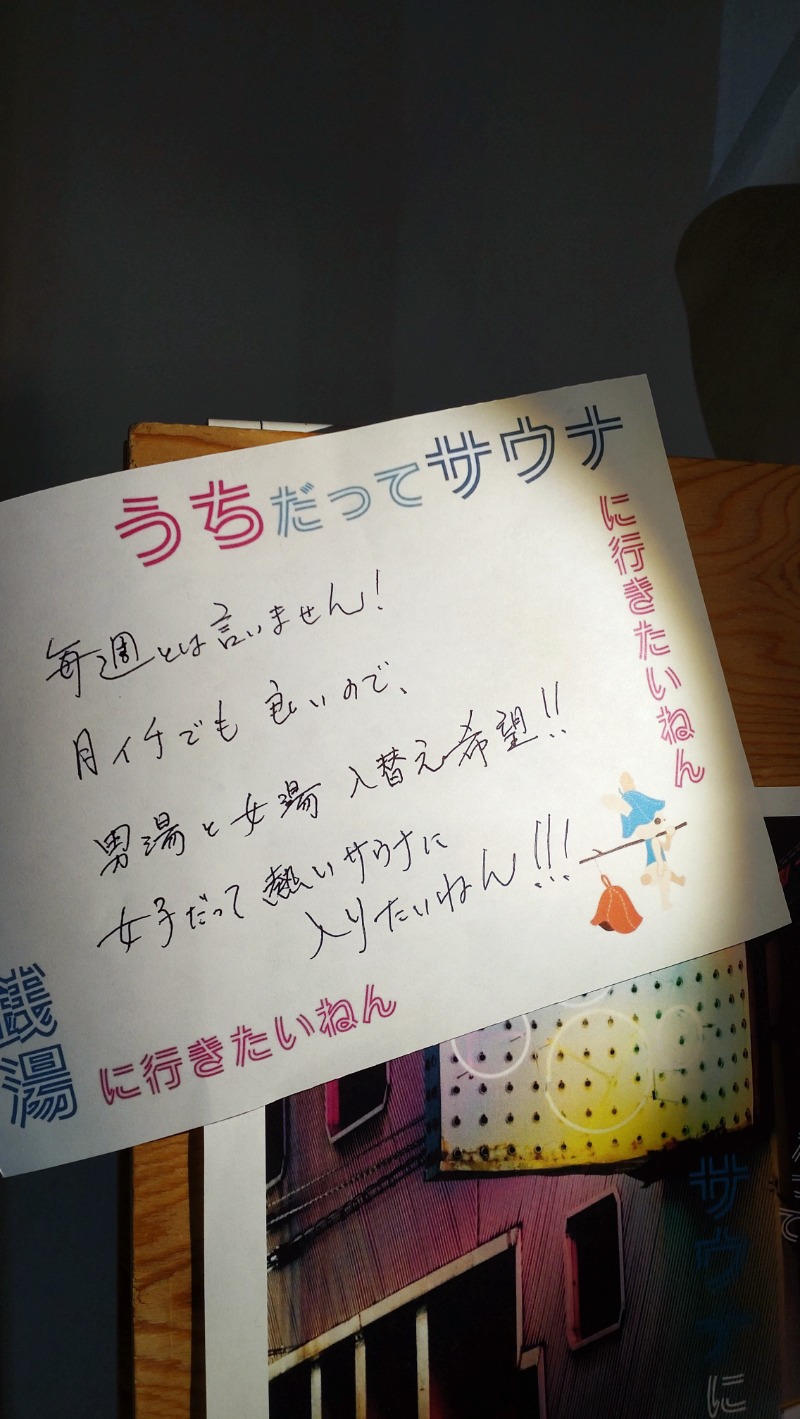 うちだってサウナ
に行きたいねん
毎週とは言いません!
月イチでも良いので、
男湯と女湯 入替え希望!!
女子だって熱いサウナに
入りたいねん!!!
銭湯
に行きたいねん
サウナに